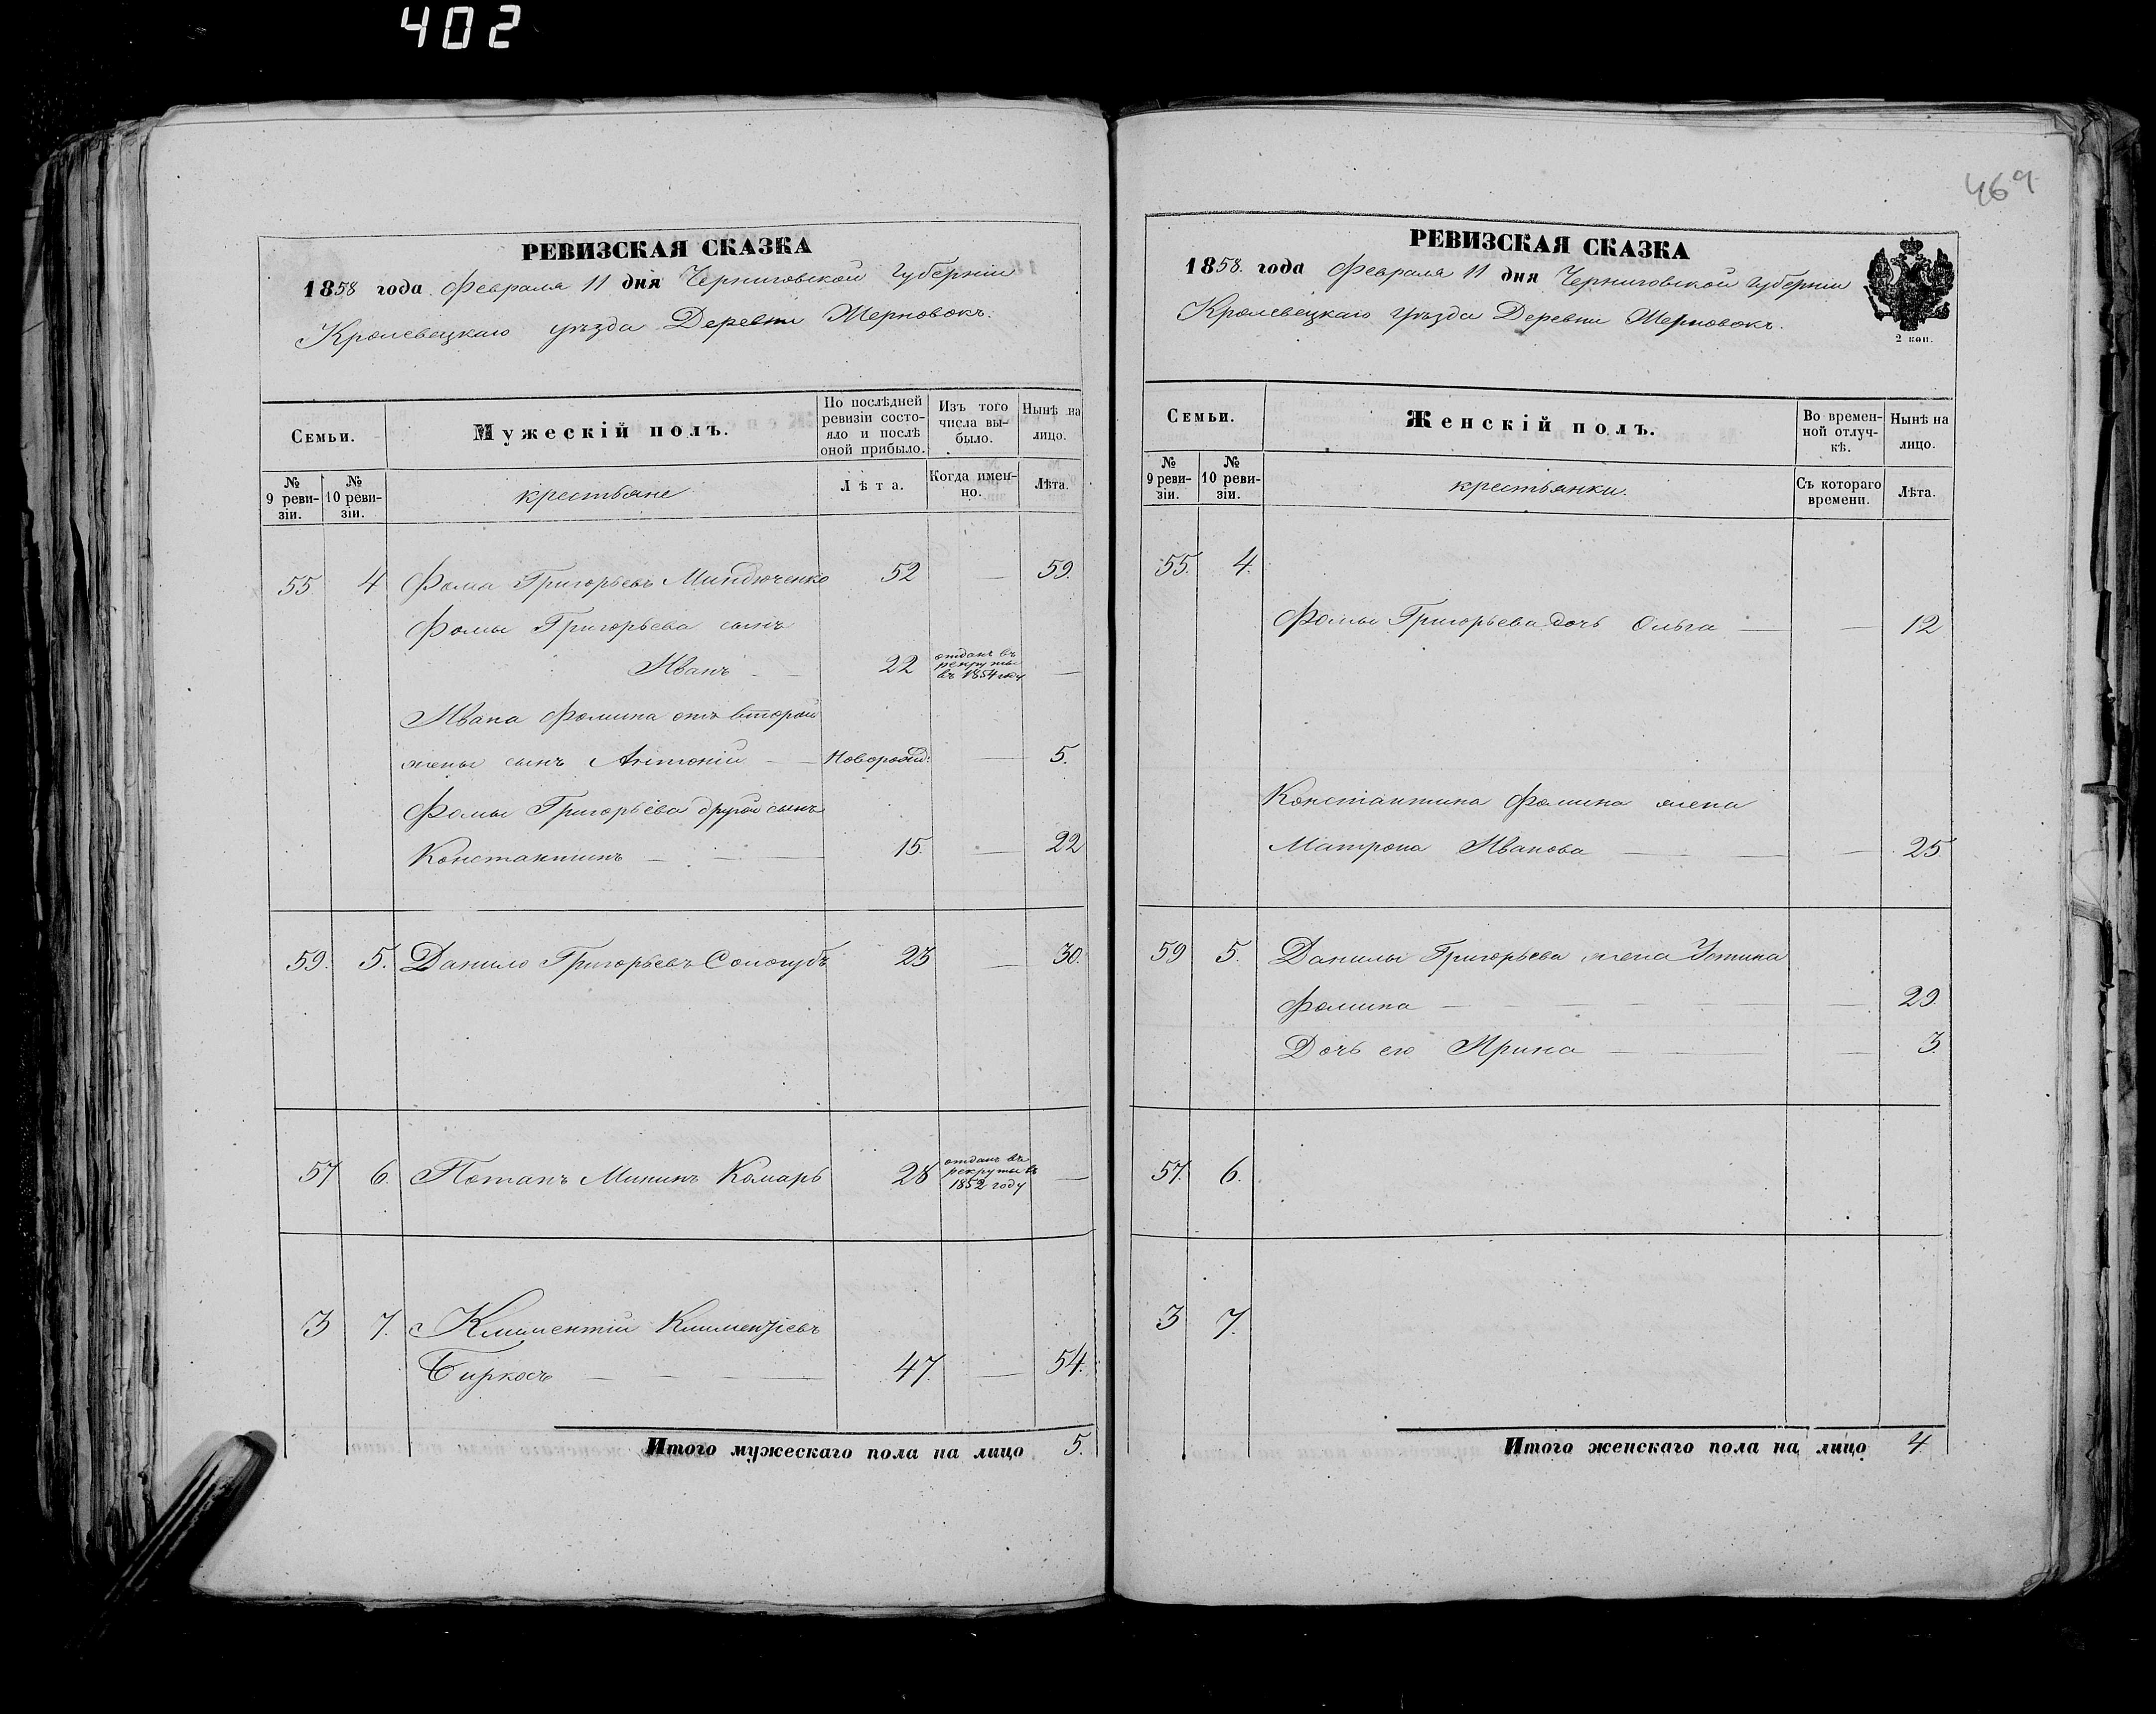 402
469
РЕВИЗСКАЯ СКАЗКА
1858 года Февраля 11 дня Черниговской Губерніи
Кролевецкаго уѣзда Деревни Жерновокъ.
Семьи.
Мужескій полъ.
По послѣдней ревизіи состояло и послѣ оной прибыло.
Изъ того числа выбыло.
Нынѣ на лицо.
№ 9 ревизіи.
№ 10 ревизіи.
крестьяне
Лѣта.
Когда именно.
Лѣта.
55 4 Фома Григорьевъ Миндюченко 52 — 59.
Фомы Григорьева сынъ
Иванъ — 22 отданъ въ рекруты въ 1854 году —
Ивана Фомина отъ второй
жены сынъ Антоній — Новорожд: — 5.
Фомы Григорьева другой сынъ
Константинъ — 15. — 22
59. 5. Данило Григорьевъ Сологубъ 23 — 30.
57 6. Потапъ Мининъ Комаръ 28 отданъ въ рекруты въ 1852 году —
3 7. Климентій Климентіевъ
Биркосъ — 47. — 54.
Итого мужескаго пола на лицо 5.
РЕВИЗСКАЯ СКАЗКА
1858. года Февраля 11 дня Черниговской Губерніи
Кролевецкаго уѣзда Деревни Жерновокъ.
2 коп.
Семьи.
Женскій полъ.
Во временной отлучкѣ.
Нынѣ на лицо.
№ 9 ревизіи.
№ 10 ревизіи.
крестьянки.
Съ котораго времени.
Лѣта.
55. 4.
Фомы Григорьева дочь Ольга — — 12
Константина Фомина жена
Матрона Иванова — — 25
59 5. Данилы Григорьева жена Устина
Фомина — — 29.
Дочь его Ирина — — 3.
57. 6.
3 7.
Итого женскаго пола на лицо 4.